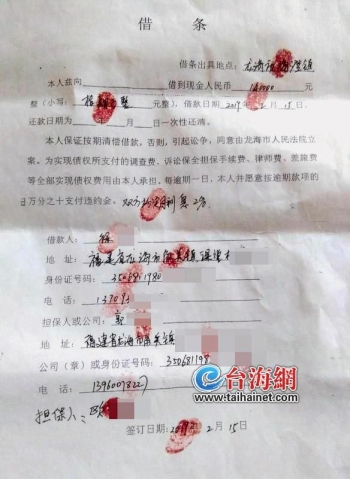 借 条
借条出具地点：龙海
本人兹向 借到现金人民币 元
整（小写： 元整），借款日期2019年2月15日，
还款日期为 年 月 日一次性还清。
本人保证按期清偿借款，否则，引起讼争，同意由龙海市人民法院立
案。为实现债权所支付的调查费、诉讼保全担保手续费、律师费、差旅费
等全部实现债权费用由本人承担。每逾期一日，本人并愿意按逾期款项的
万分之十支付违约金。双方 月利 2分
借款人：徐
地 址：福建省龙海市
身份证号码：3506811980
电 话：137093
担保人或公司：郭
地 址：福建省龙海市
公司（章）或身份证号码：350681198
电 话：13960078227
担保人：
签订日期：2019年2月15日
台海網
www.taihainet.com